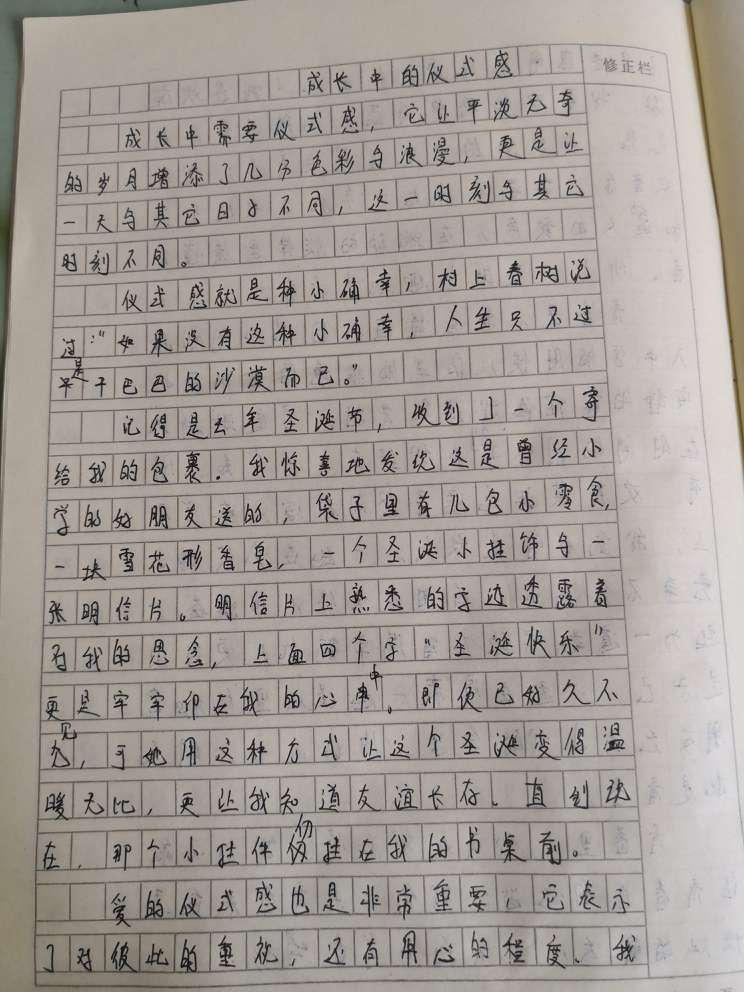 修正栏
成长中的仪式感
成长中需要仪式感，它让平淡无奇
的岁月增添了几分色彩与浪漫，更是让
一天与其它日子不同，这一时刻与其它
时刻不同。
仪式感就是种小确幸，村上春树说
过："如果没有这种小确幸，人生只不过
是干巴巴的沙漠而已。"
记得是去年圣诞节，收到了一个寄
给我的包裹．我惊喜地发现这是曾经小
学的好朋友送的，袋子里有几包小零食，
一块雪花形香皂，一个圣诞小挂饰与一
张明信片。明信片上熟悉的字迹透露着
对我的思念，上面四个字"圣诞快乐"
更是牢牢印在我的心中。即使已好久不
见，可她用这种方式让这个圣诞变得温
暖无比，更让我知道友谊长存．直到现
在，那个小挂件仍挂在我的书桌前。
爱的仪式感也是非常重要，它表示
了对彼此的重视，还有用心的程度．我